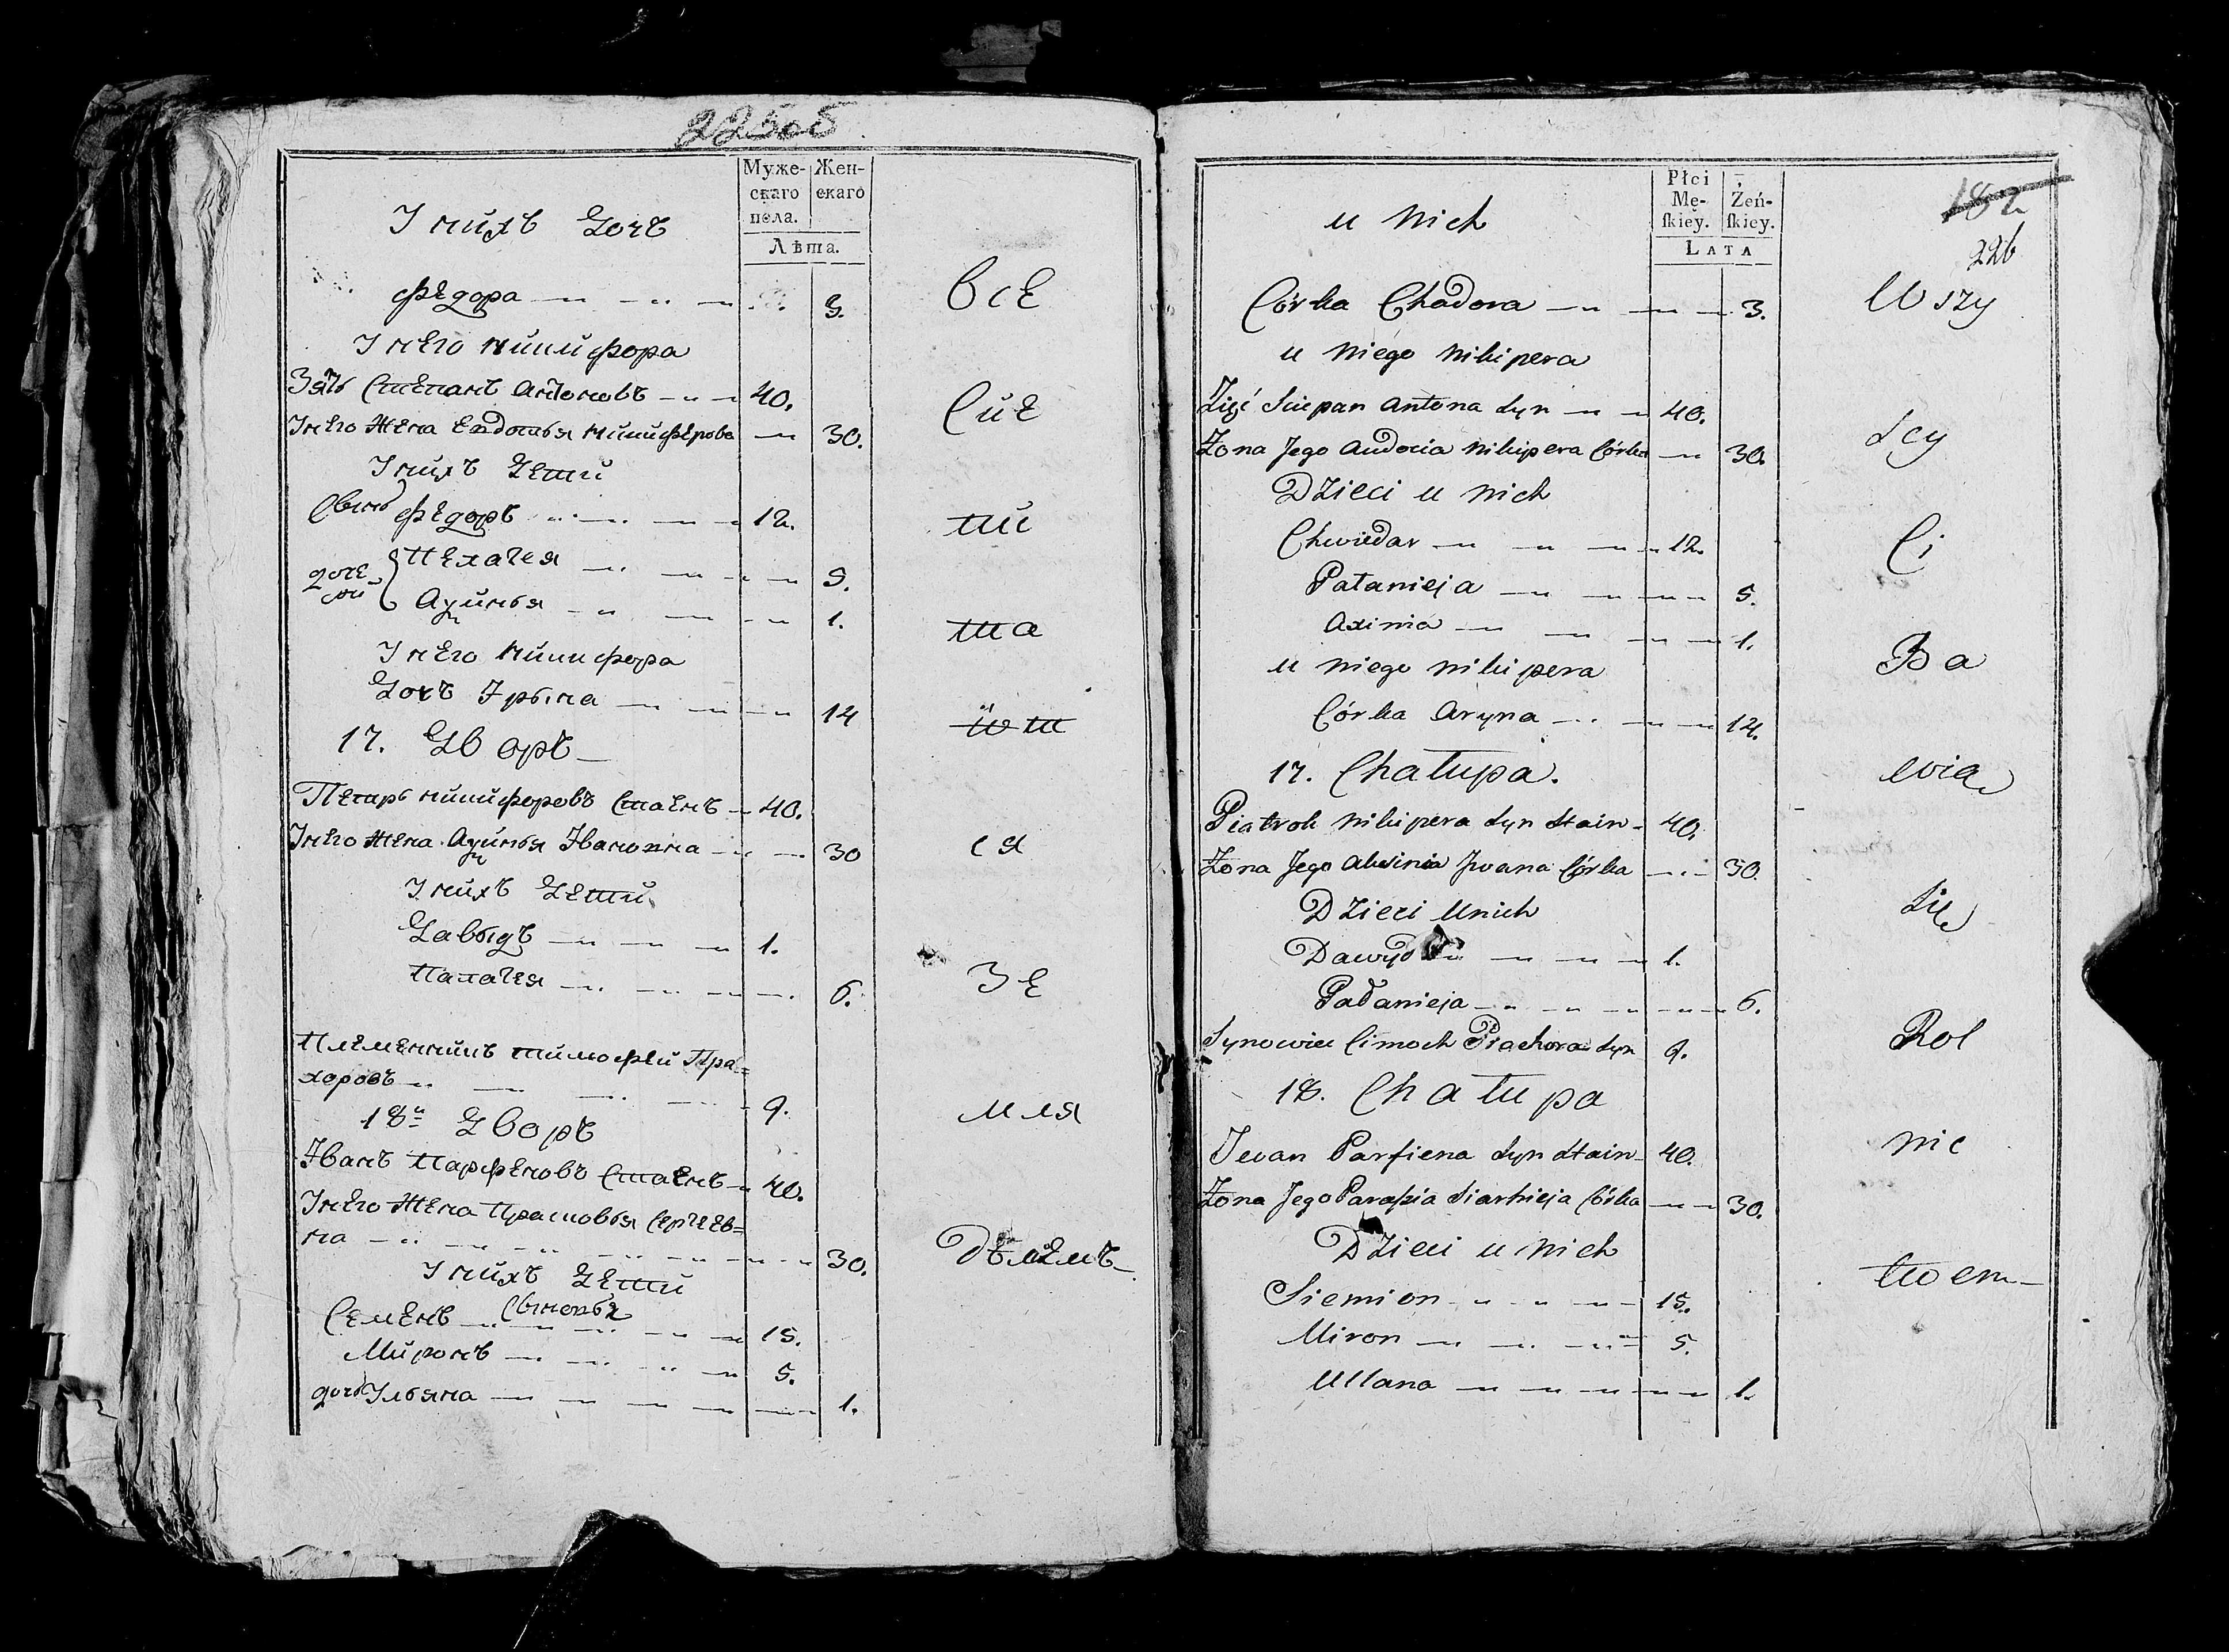 225об
Муже-
скаго
пола.
Жен-
скаго
Лѣта.
У нихъ Дочъ
Федора 3.
У него никифора
Зять Степанъ Антоновъ 40.
У него жена Евдотья никифорова 30.
У нихъ Дети
Сынъ Федоръ 12.
доче-
ри
Пелагея 5.
Аѯинья 1.
У него никифора
Дочъ Ірына 14
17. Дворъ
Петръ никифоровъ Стаенъ 40.
У него жена Аѯинья Іванонна 30
У нихъ Дети
Давыдъ 1.
Палагея 6.
Племенникъ тимофей Пра=
хоровъ 9.
18й Дворъ
Іванъ Парфеновъ Стаенъ 40.
У него жена Прасковья Сергеев=
на 30.
У нихъ Дети
Сыновья
Семенъ 15.
Миронъ 5.
дочь Ульяна 1.
все
Сие
ти
та
ют
ся
Зе
мля
дѣлемъ
Płci
Mę-
ſkiey.
Żeń-
ſkiey.
LATA
182
226
u nich
Córka Chadora 3.
u niego nikipera
Zięć Sciepan Antona syn 40.
Żona Jego Audocia nikipera Córka 30.
Dzieci u nich
Chwiedar 12.
Pałanieja 5.
Axinia 1.
u niego nikipera
Córka Aryna 14.
17. Chałupa.
Piatrok nikipera syn stain 40.
Żona Jego Aksinia Jwana Córka 30.
Dzieci unich
Dawyd 1.
Pałanieja 6.
Synowiec Cimoch Prachora syn 9.
18. Chałupa
Iwan Parfiena syn stain 40.
Żona Jego Paraska Siarhieja Córka 30.
Dzieci u nich
Siemion 15.
Miron 5.
Ullana 1.
Wszy
scy
Ci
Ba
wią
się
Rol
nic
twem